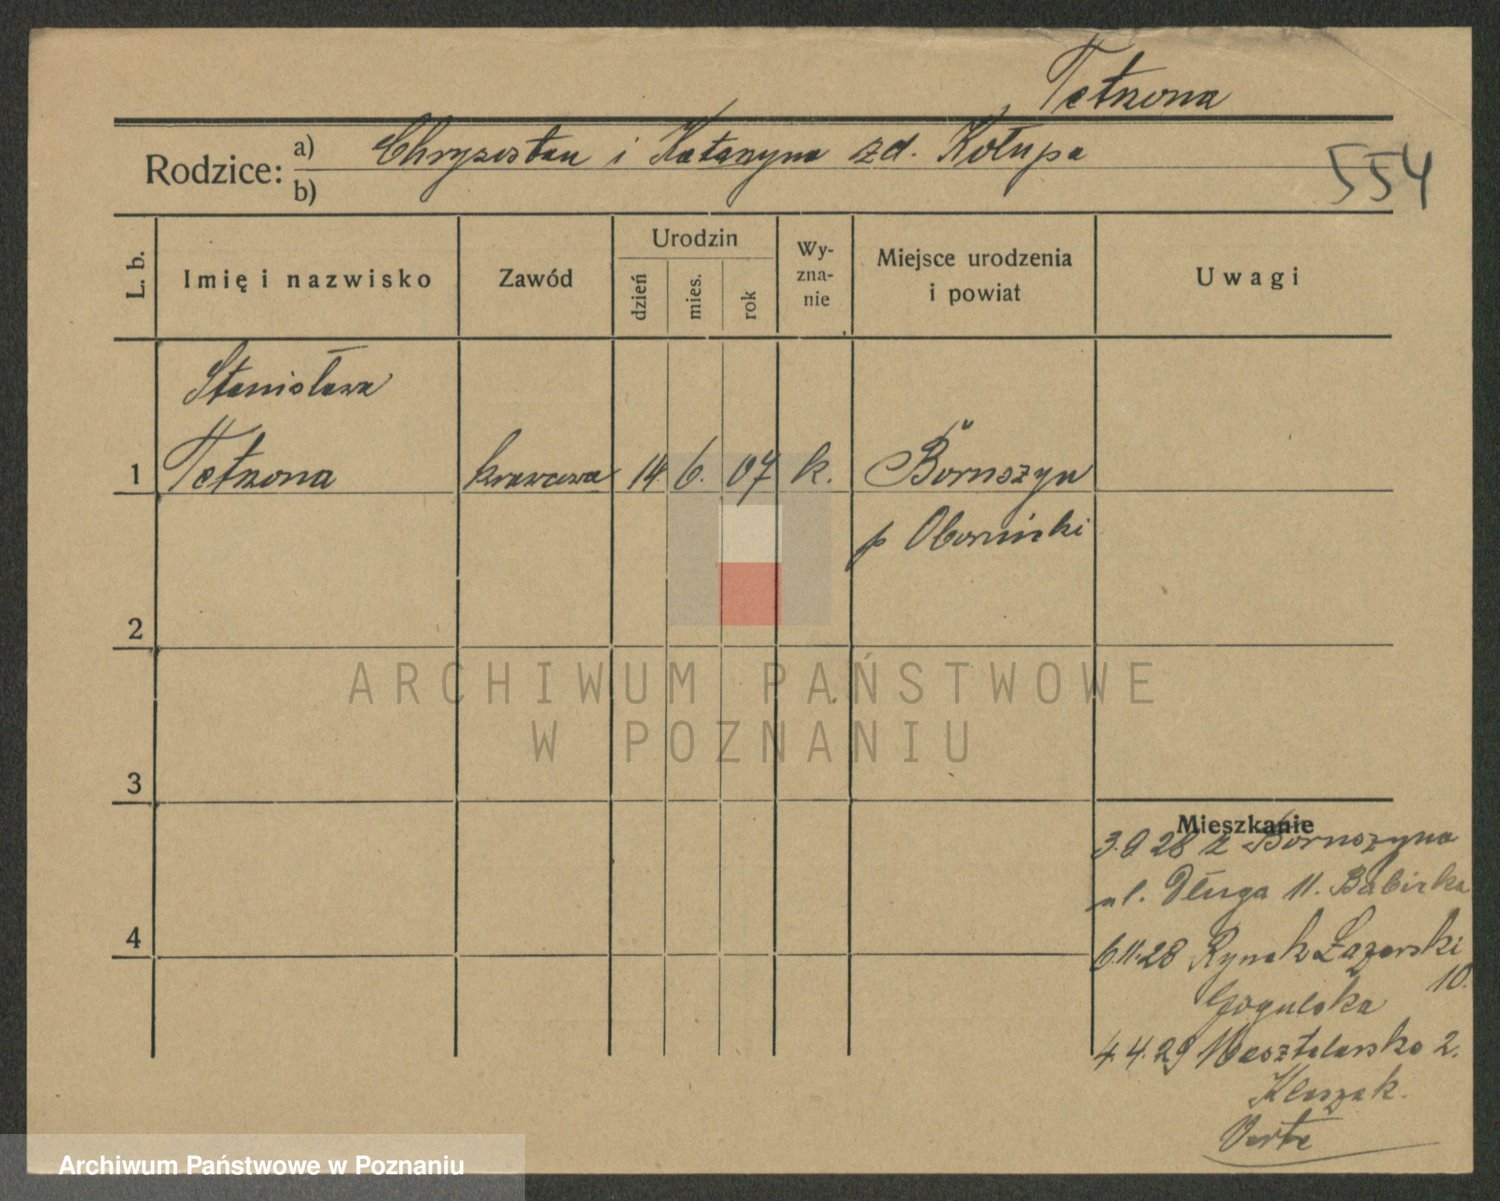 Tetzona
Rodzice: a) Chryzostan i Katarzyna zd. Kołupa
b)
554
L. b.
Imię i nazwisko
Zawód
Urodzin
dzień
mies.
rok
Wy-
zna-
nie
Miejsce urodzenia
i powiat
Uwagi
Stanisława
1 Tetzona krawcowa 14 6. 07 k. Bornszyn
p Obornicki
2
3
4
Mieszkanie
3.9 28 z Bornszyna
ul. Długa 11. Babirka
6.11.28 Rynek Łazarski
10.
Gogulska
4.4.29 Masztalarska 2.
Kluszak.
Verte
ARCHIWUM PAŃSTWOWE
W POZNANIU
Archiwum Państwowe w Poznaniu